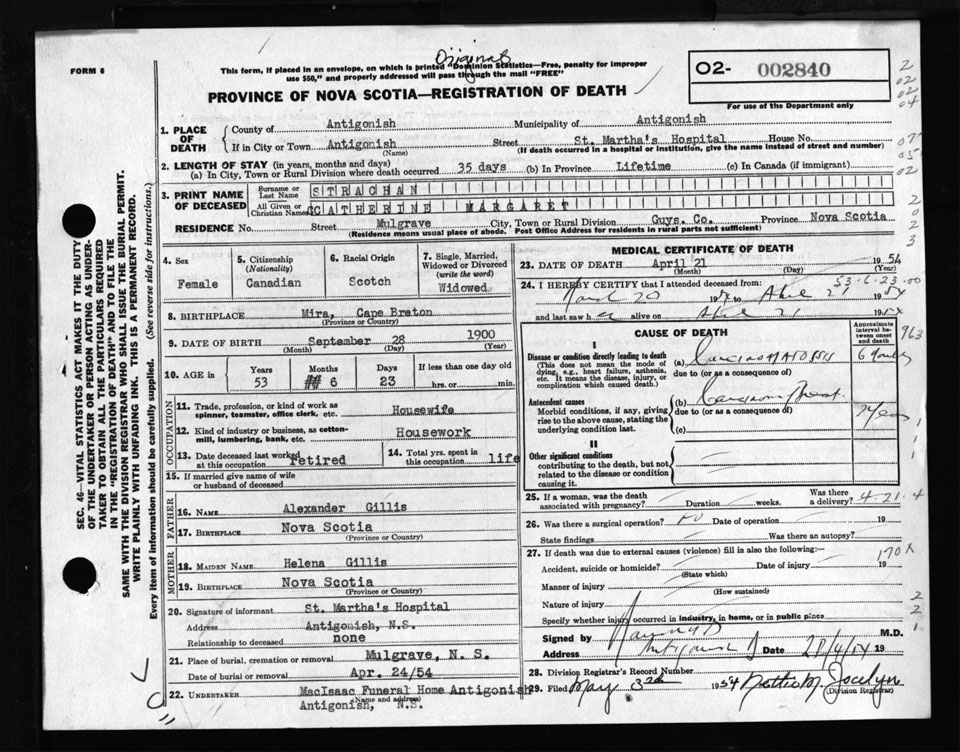 Original
FORM 6
This form, if placed in an envelope, on which is printed "Dominion Statistics—Free, penalty for improper
use $50," and properly addressed will pass through the mail "FREE"
PROVINCE OF NOVA SCOTIA—REGISTRATION OF DEATH
02- 002840
For use of the Department only
2
02
02
04
1. PLACE OF DEATH
County of Antigonish Municipality of Antigonish
If in City or Town Antigonish Street St. Martha's Hospital House No.
(Name) (If death occurred in a hospital or institution, give the name instead of street and number)
2. LENGTH OF STAY (in years, months and days)
(a) In City, Town or Rural Division where death occurred 35 days (b) In Province Lifetime (c) In Canada (if immigrant)
3. PRINT NAME OF DECEASED
Surname or Last Name STRACHAN
All Given or Christian Names CATHERINE MARGARET
RESIDENCE No. Street Mulgrave City, Town or Rural Division Guys. Co. Province Nova Scotia
(Residence means usual place of abode. Post Office Address for residents in rural parts not sufficient)
4. Sex
Female
5. Citizenship (Nationality)
Canadian
6. Racial Origin
Scotch
7. Single, Married, Widowed or Divorced (write the word)
Widowed
8. BIRTHPLACE Mira, Cape Breton
(Province or Country)
9. DATE OF BIRTH September 28 1900
(Month) (Day) (Year)
10. AGE in Years Months Days If less than one day old
53 ## 6 23 hrs. or min.
OCCUPATION
11. Trade, profession, or kind of work as spinner, teamster, office clerk, etc. Housewife
12. Kind of industry or business, as cotton-mill, lumbering, bank, etc. Housework
13. Date deceased last worked at this occupation retired
14. Total yrs. spent in this occupation life
15. If married give name of wife or husband of deceased
FATHER
16. NAME Alexander Gillis
17. BIRTHPLACE Nova Scotia
(Province or Country)
MOTHER
18. MAIDEN NAME Helena Gillis
19. BIRTHPLACE Nova Scotia
(Province or Country)
20. Signature of informant St. Martha's Hospital
Address Antigonish, N.S.
Relationship to deceased none
21. Place of burial, cremation or removal Mulgrave, N. S.
Date of burial or removal Apr. 24/54
22. UNDERTAKER MacIsaac Funeral Home Antigonish
(Name and address)
Antigonish, N.S.
MEDICAL CERTIFICATE OF DEATH
23. DATE OF DEATH April 21 1954
(Month) (Day) (Year)
53.6.23.00
24. I HEREBY CERTIFY that I attended deceased from:
March 20 1954 to April 21 1954
and last saw her alive on April 21 1954
CAUSE OF DEATH
Approximate interval between onset and death
963
I
Disease or condition directly leading to death
(This does not mean the mode of dying, e.g., heart failure, asthenia, etc. It means the disease, injury, or complication which caused death.)
(a) Carcinomatosis
due to (or as a consequence of)
Antecedent causes
Morbid conditions, if any, giving rise to the above cause, stating the underlying condition last.
(b) Carcinoma Breast
due to (or as a consequence of)
(c)
II
Other significant conditions
contributing to the death, but not related to the disease or condition causing it.
25. If a woman, was the death associated with pregnancy? Duration weeks. Was there a delivery? 4-21-4
26. Was there a surgical operation? no Date of operation 19
State findings Was there an autopsy?
27. If death was due to external causes (violence) fill in also the following:—
170X
Accident, suicide or homicide? Date of injury 19
(State which)
Manner of injury
(How sustained)
Nature of injury
Specify whether injury occurred in industry, in home, or in public places
Signed by M.D.
Address Antigonish Date 28/4/54 19
28. Division Registrar's Record Number
29. Filed May 3rd 1954 Nettie M. Jocelyn
(Division Registrar)
SEC. 46—VITAL STATISTICS ACT MAKES IT THE DUTY
OF THE UNDERTAKER OR PERSON ACTING AS UNDER-
TAKER TO OBTAIN ALL THE PARTICULARS REQUIRED
IN THE "REGISTRATION OF DEATH" AND TO FILE THE
SAME WITH THE DIVISION REGISTRAR WHO SHALL ISSUE THE BURIAL PERMIT.
WRITE PLAINLY WITH UNFADING INK. THIS IS A PERMANENT RECORD.
Every item of information should be carefully supplied. (See reverse side for instructions.)